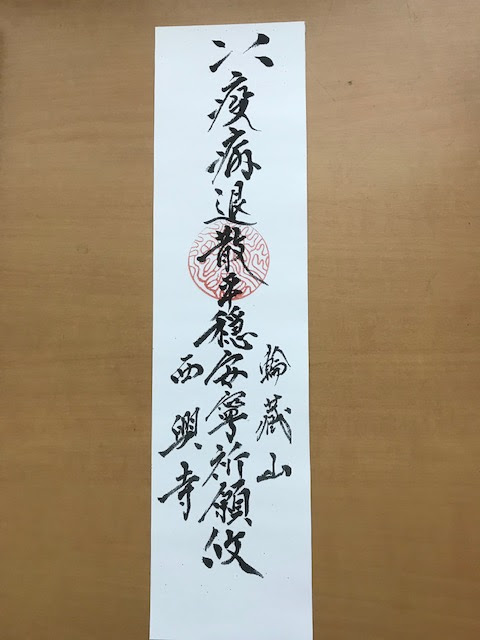 疫病退散平穏安寧祈願攸
輪藏山
西興寺